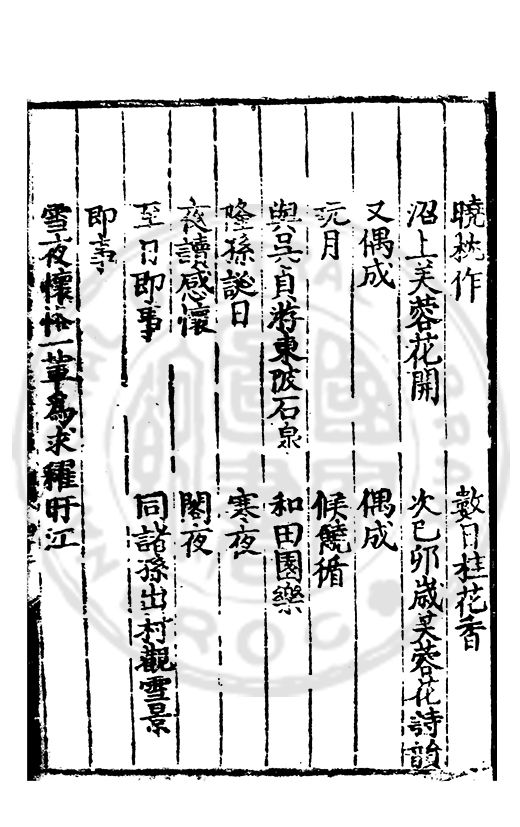 曉枕作 數日桂花香
沼上芙蓉花開 次己卯歲芙蓉花詩韻
又偶成 偶成
玩月 候饒循
與吳貞游東陂石泉 和田園樂
隆孫誕日 寒夜
夜讀感懷 閣夜
至日即事 同諸孫出村觀雪景
即事
雪夜懷 一軰為求糴旴江